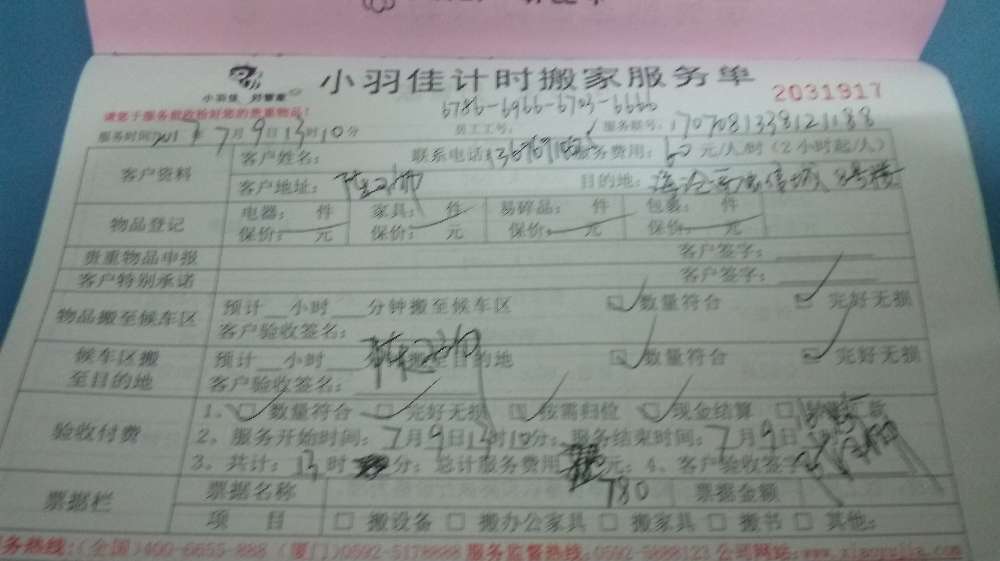 小羽佳计时搬家服务单
小羽佳
2031917
请您于服务前收拾好您的贵重物品!
6786-6966-6703-6666
服务时间 7月9日13时10分 员工工号: 服务账号: 1707081338121188
客户资料 客户姓名: 联系电话 服务费用: 60元/人/时(2小时起/人)
客户地址: 目的地:
物品登记 电器: 件 家具: 件 易碎品: 件 包裹: 件
保价: 元 保价: 元 保价: 元 保价: 元
贵重物品申报 客户签字:
客户特别承诺 客户签字:
物品搬至候车区 预计 小时 分钟搬至候车区 数量符合 完好无损
客户验收签名:
候车区搬至目的地 预计 小时 搬至目的地 数量符合 完好无损
客户验收签名:
验收付费 1、 数量符合 完好无损 按需归位 现金结算
2、服务开始时间: 7月9日13时10分; 服务结束时间: 7月9日
3、共计: 13时 分; 总计服务费用 元; 4、客户验收签字
780
票据栏 票据名称 票据金额
项 目 搬设备 搬办公家具 搬家具 搬书 其他:
服务热线:(全国)400-6655-888 (厦门)0592-5178888 服务监督热线:0592-5888123 公司网站:www.xiaoyujia.com